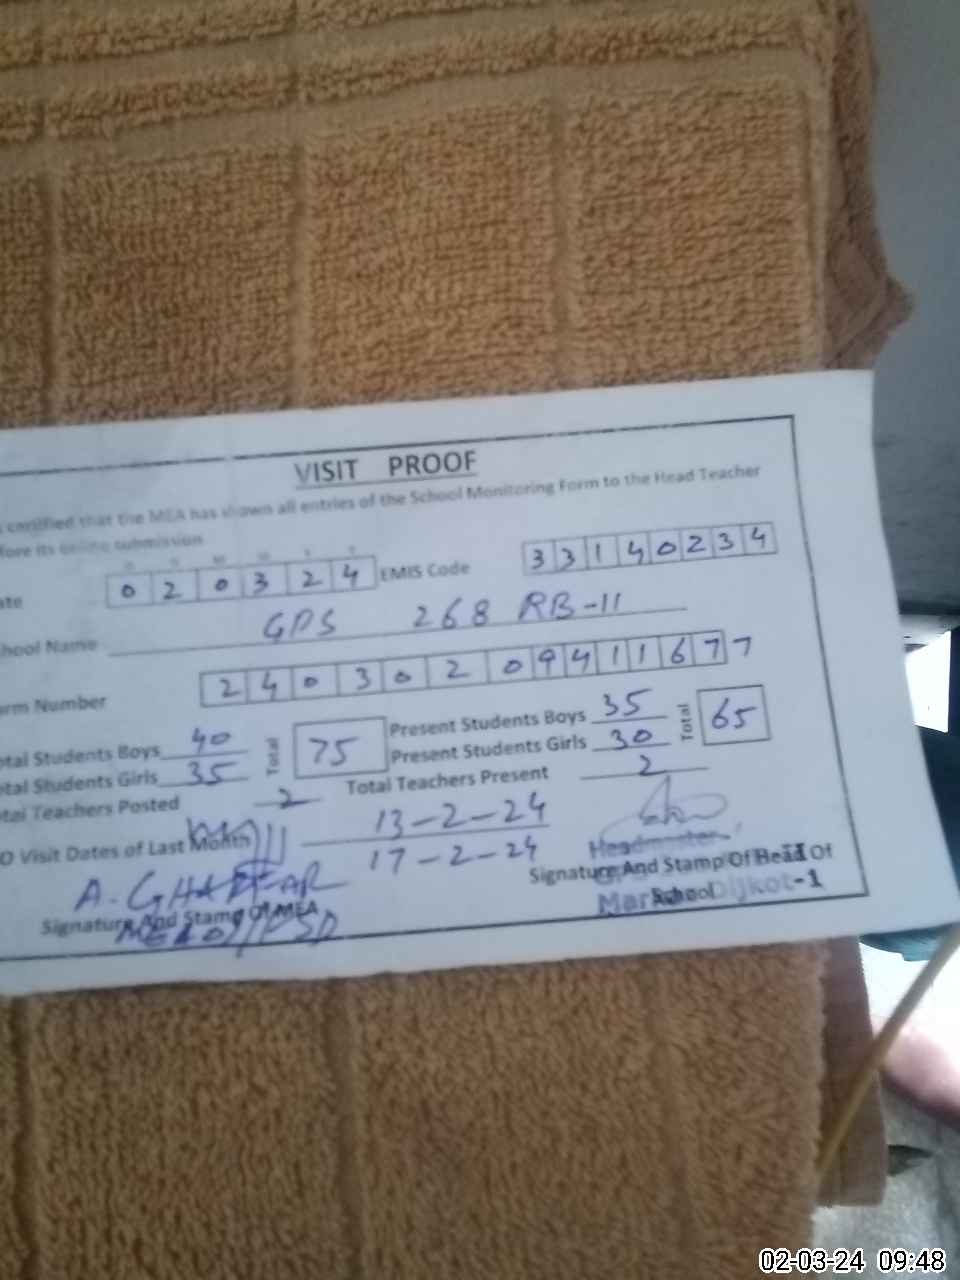 VISIT PROOF
certified that the MEA has shown all entries of the School Monitoring Form to the Head Teacher
fore its online submission
ate 0 2 0 3 2 4 EMIS Code 3 3 1 4 0 2 3 4
hool Name GPS 268 RB-II
rm Number 2 4 0 3 0 2 0 9 4 1 1 6 7 7
otal Students Boys 40 Total 75 Present Students Boys 35 Total 65
otal Students Girls 35 Present Students Girls 30
otal Teachers Posted 2 Total Teachers Present 2
O Visit Dates of Last Month 13-2-24
17-2-24
Headmaster
A. GHAFFAR
Signature And Stamp Of MEA
Signature And Stamp Of Head Of
School
Dijkot-1
02-03-24 09:48